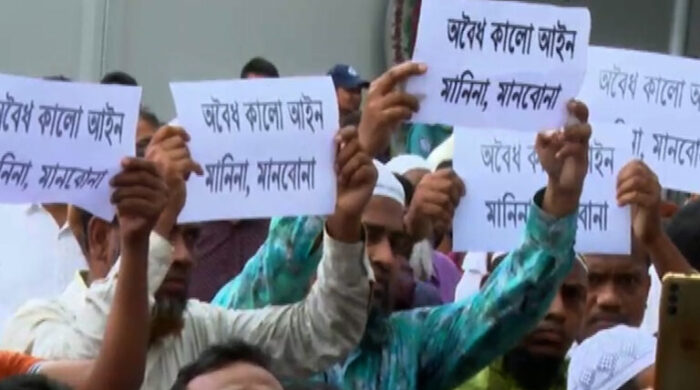 অবৈধ কালো আইন
মানিনা, মানবোনা
অবৈধ কালো আইন
মানিনা, মানবোনা
অবৈধ কালো আইন
মানিনা, মানবোনা
অবৈধ কালো আইন
মানিনা, মানবোনা
অবৈধ কালো আইন
মানবোনা